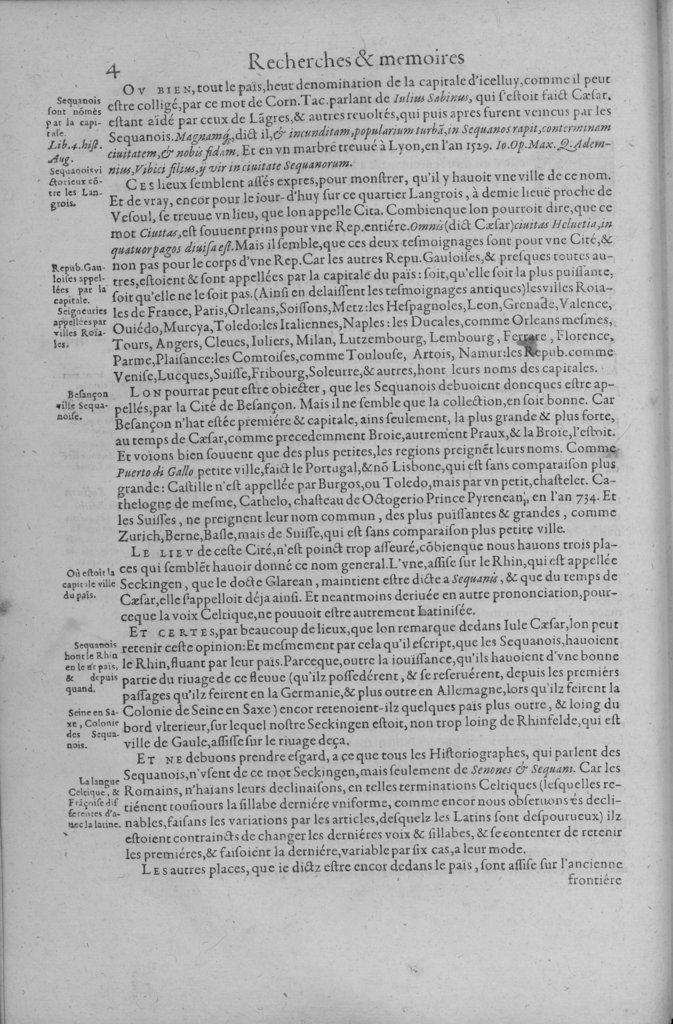 4
Recherches & memoires
OV BIEN, tout le païs, heut denomination de la capitale d'icelluy, comme il peut
eſtre colligé, par ce mot de Corn. Tac. parlant de Iulius Sabinus, qui s'eſtoit faict Cæſar,
eſtant aidé par ceux de Lãgres, & autres reuoltés, qui puis apres furent veincus par les
Sequanois. Magnamq́, dict il, & incunditam, popularium turbã, in Sequanos rapit, conterminam
ciuitatem, & nobis fidam. Et en vn marbre treuué à Lyon, en l'an 1529. Io. Op. Max. Q. Adem-
nius, Vibici filius, ij vir in ciuitate Sequanorum.
Sequanois
ſont nõmés
par la capi-
tale.
Lib. 4. hiſt.
Aug.
Sequanois vi
ctorieux cõ-
tre les Lan-
grois.
CES lieux ſemblent aſſés expres, pour monſtrer, qu'il y hauoit vne ville de ce nom.
Et de vray, encor pour le iour-d'huy ſur ce quartier Langrois, à demie lieuë proche de
Veſoul, ſe treuue vn lieu, que lon appelle Cita. Combien que lon pourroit dire, que ce
mot Ciuitas, eſt ſouuent prins pour vne Rep. entiére. Omnis (dict Cæſar) ciuitas Heluetia, in
quatuor pagos diuiſa eſt. Mais il ſemble, que ces deux teſmoignages ſont pour vne Cité, &
non pas pour le corps d'vne Rep. Car les autres Repu. Gauloiſes, & preſques toutes au-
tres, eſtoient & ſont appellées par la capitale du païs: ſoit, qu'elle ſoit la plus puiſſante,
ſoit qu'elle ne le ſoit pas. (Ainſi en delaiſſent les teſmoignages antiques) les villes Roïa-
les de France, Paris, Orleans, Soiſſons, Metz: les Heſpagnoles, Leon, Grenade, Valence,
Ouiédo, Murcya, Toledo: les Italiennes, Naples: les Ducales, comme Orleans meſmes,
Tours, Angers, Cleues, Iuliers, Milan, Lutzembourg, Lembourg, Ferrare, Florence,
Parme, Plaiſance: les Comtoiſes, comme Toulouſe, Artois, Namur: les Repub. comme
Veniſe, Lucques, Suiſſe, Fribourg, Soleurre, & autres, hont leurs noms des capitales.
Repub. Gau-
loiſes appel-
lées par la
capitale.
Seigneuries
appellées par
villes Roïa-
les.
LON pourrat peut eſtre obiecter, que les Sequanois debuoient doncques eſtre ap-
pellés, par la Cité de Beſançon. Mais il ne ſemble que la collection, en ſoit bonne. Car
Beſançon n'hat eſtée premiére & capitale, ains ſeulement, la plus grande & plus forte,
au temps de Cæſar, comme precedemment Broie, autrement Praux, & la Broïe, l'eſtoit.
Et voïons bien ſouuent que des plus petites, les regions preignẽt leurs noms. Comme
Puerto di Gallo petite ville, faict le Portugal, & nõ Lisbone, qui eſt ſans comparaiſon plus
grande: Caſtille n'eſt appellée par Burgos, ou Toledo, mais par vn petit, chaſtelet. Ca-
thelogne de meſme, Cathelo, chaſteau de Octogerio Prince Pyrenean, en l'an 734. Et
les Suiſſes, ne preignent leur nom commun, des plus puiſſantes & grandes, comme
Zurich, Berne, Baſle, mais de Suiſſe, qui eſt ſans comparaiſon plus petite ville.
Beſançon
ville Sequa-
noiſe.
LE LIEV de ceſte Cité, n'eſt poinct trop aſſeuré, cõbien que nous hauons trois pla-
ces qui ſemblẽt hauoir donné ce nom general. L'vne, aſſiſe ſur le Rhin, qui eſt appellée
Seckingen, que le docte Glarean, maintient eſtre dicte a Sequanis, & que du temps de
Cæſar, elle s'appelloit déja ainſi. Et neantmoins deriuée en autre prononciation, pour-
ceque la voix Celtique, ne pouuoit eſtre autrement Latiniſée.
Où eſtoit la
capitale ville
du païs.
ET CERTES, par beaucoup de lieux, que lon remarque dedans Iule Cæſar, lon peut
retenir ceſte opinion: Et meſmement par cela qu'il eſcript, que les Sequanois, hauoient
le Rhin, fluant par leur païs. Parceque, outre la iouïſſance, qu'ils hauoient d'vne bonne
partie du riuage de ce fleuue (qu'ilz poſſedérent, & ſe reſeruérent, depuis les premiérs
paſſages qu'ilz feirent en la Germanie, & plus outre en Allemagne, lors qu'ilz feirent la
Colonie de Seine en Saxe) encor retenoient-ilz quelques païs plus outre, & loing du
bord vlterieur, ſur lequel noſtre Seckingen eſtoit, non trop loing de Rhinfelde, qui eſt
ville de Gaule, aſſiſſe ſur le riuage deça.
Sequanois
hont le Rhin
en leur païs,
& depuis
quand.
Seine en Sa-
xe, Colonie
des Sequa-
nois.
ET NE debuons prendre eſgard, a ce que tous les Hiſtoriographes, qui parlent des
Sequanois, n'vſent de ce mot Seckingen, mais ſeulement de Senones & Sequani. Car les
Romains, n'haïans leurs declinaiſons, en telles terminations Celtiques (leſquelles re-
tiénent touſiours la ſillabe derniére vniforme, comme encor nous obſeruons és decli-
nables, faiſans les variations par les articles, deſquelz les Latins ſont deſpourueux) ilz
eſtoient contraincts de changer les derniéres voix & ſillabes, & ſe contenter de retenir
les premiéres, & faiſoient la derniére, variable par ſix cas, a leur mode.
La langue
Celtique, &
Frãçoiſe dif
ferentes d'a-
uec la latine.
LES autres places, que ie dictz eſtre encor dedans le païs, ſont aſſiſe ſur l'ancienne
frontiére